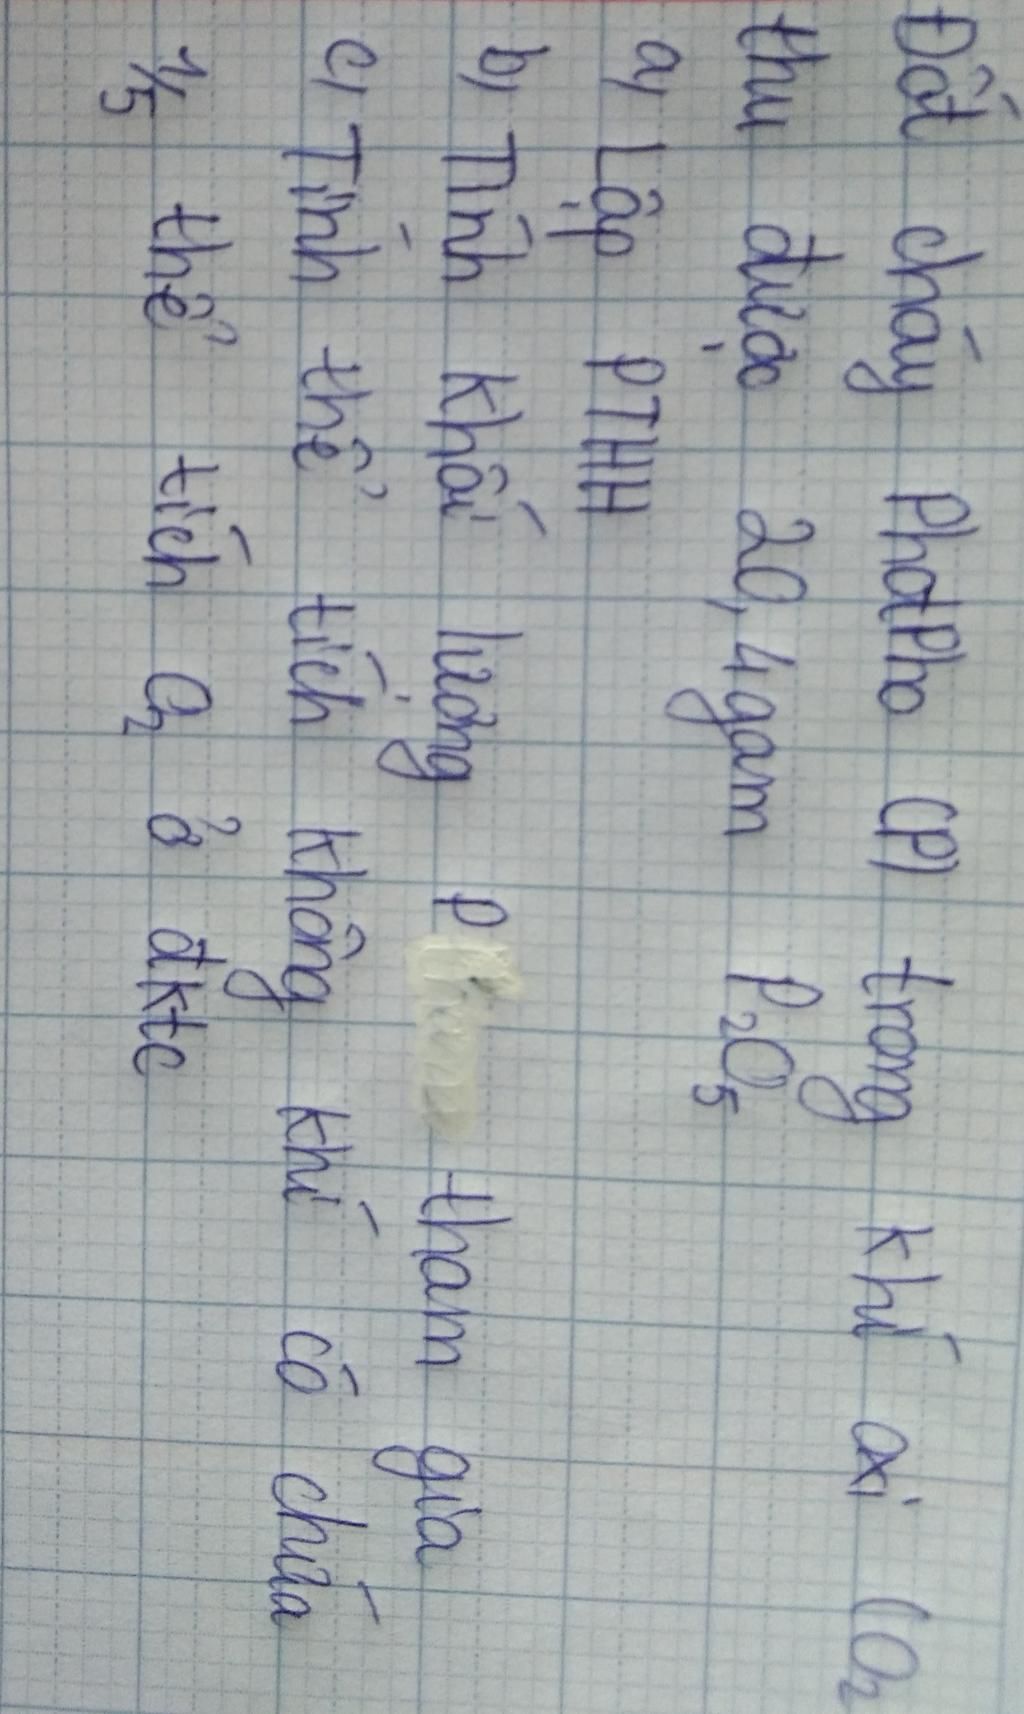 Đốt cháy PhotPho (P) trong khí oxi (O2
thu được 20,4 gam P2O5
a) Lập PTHH
b) Tính khối lượng P tham gia
c) Tính thể tích không khí có chứa
1/5 thể tích O2 ở đktc